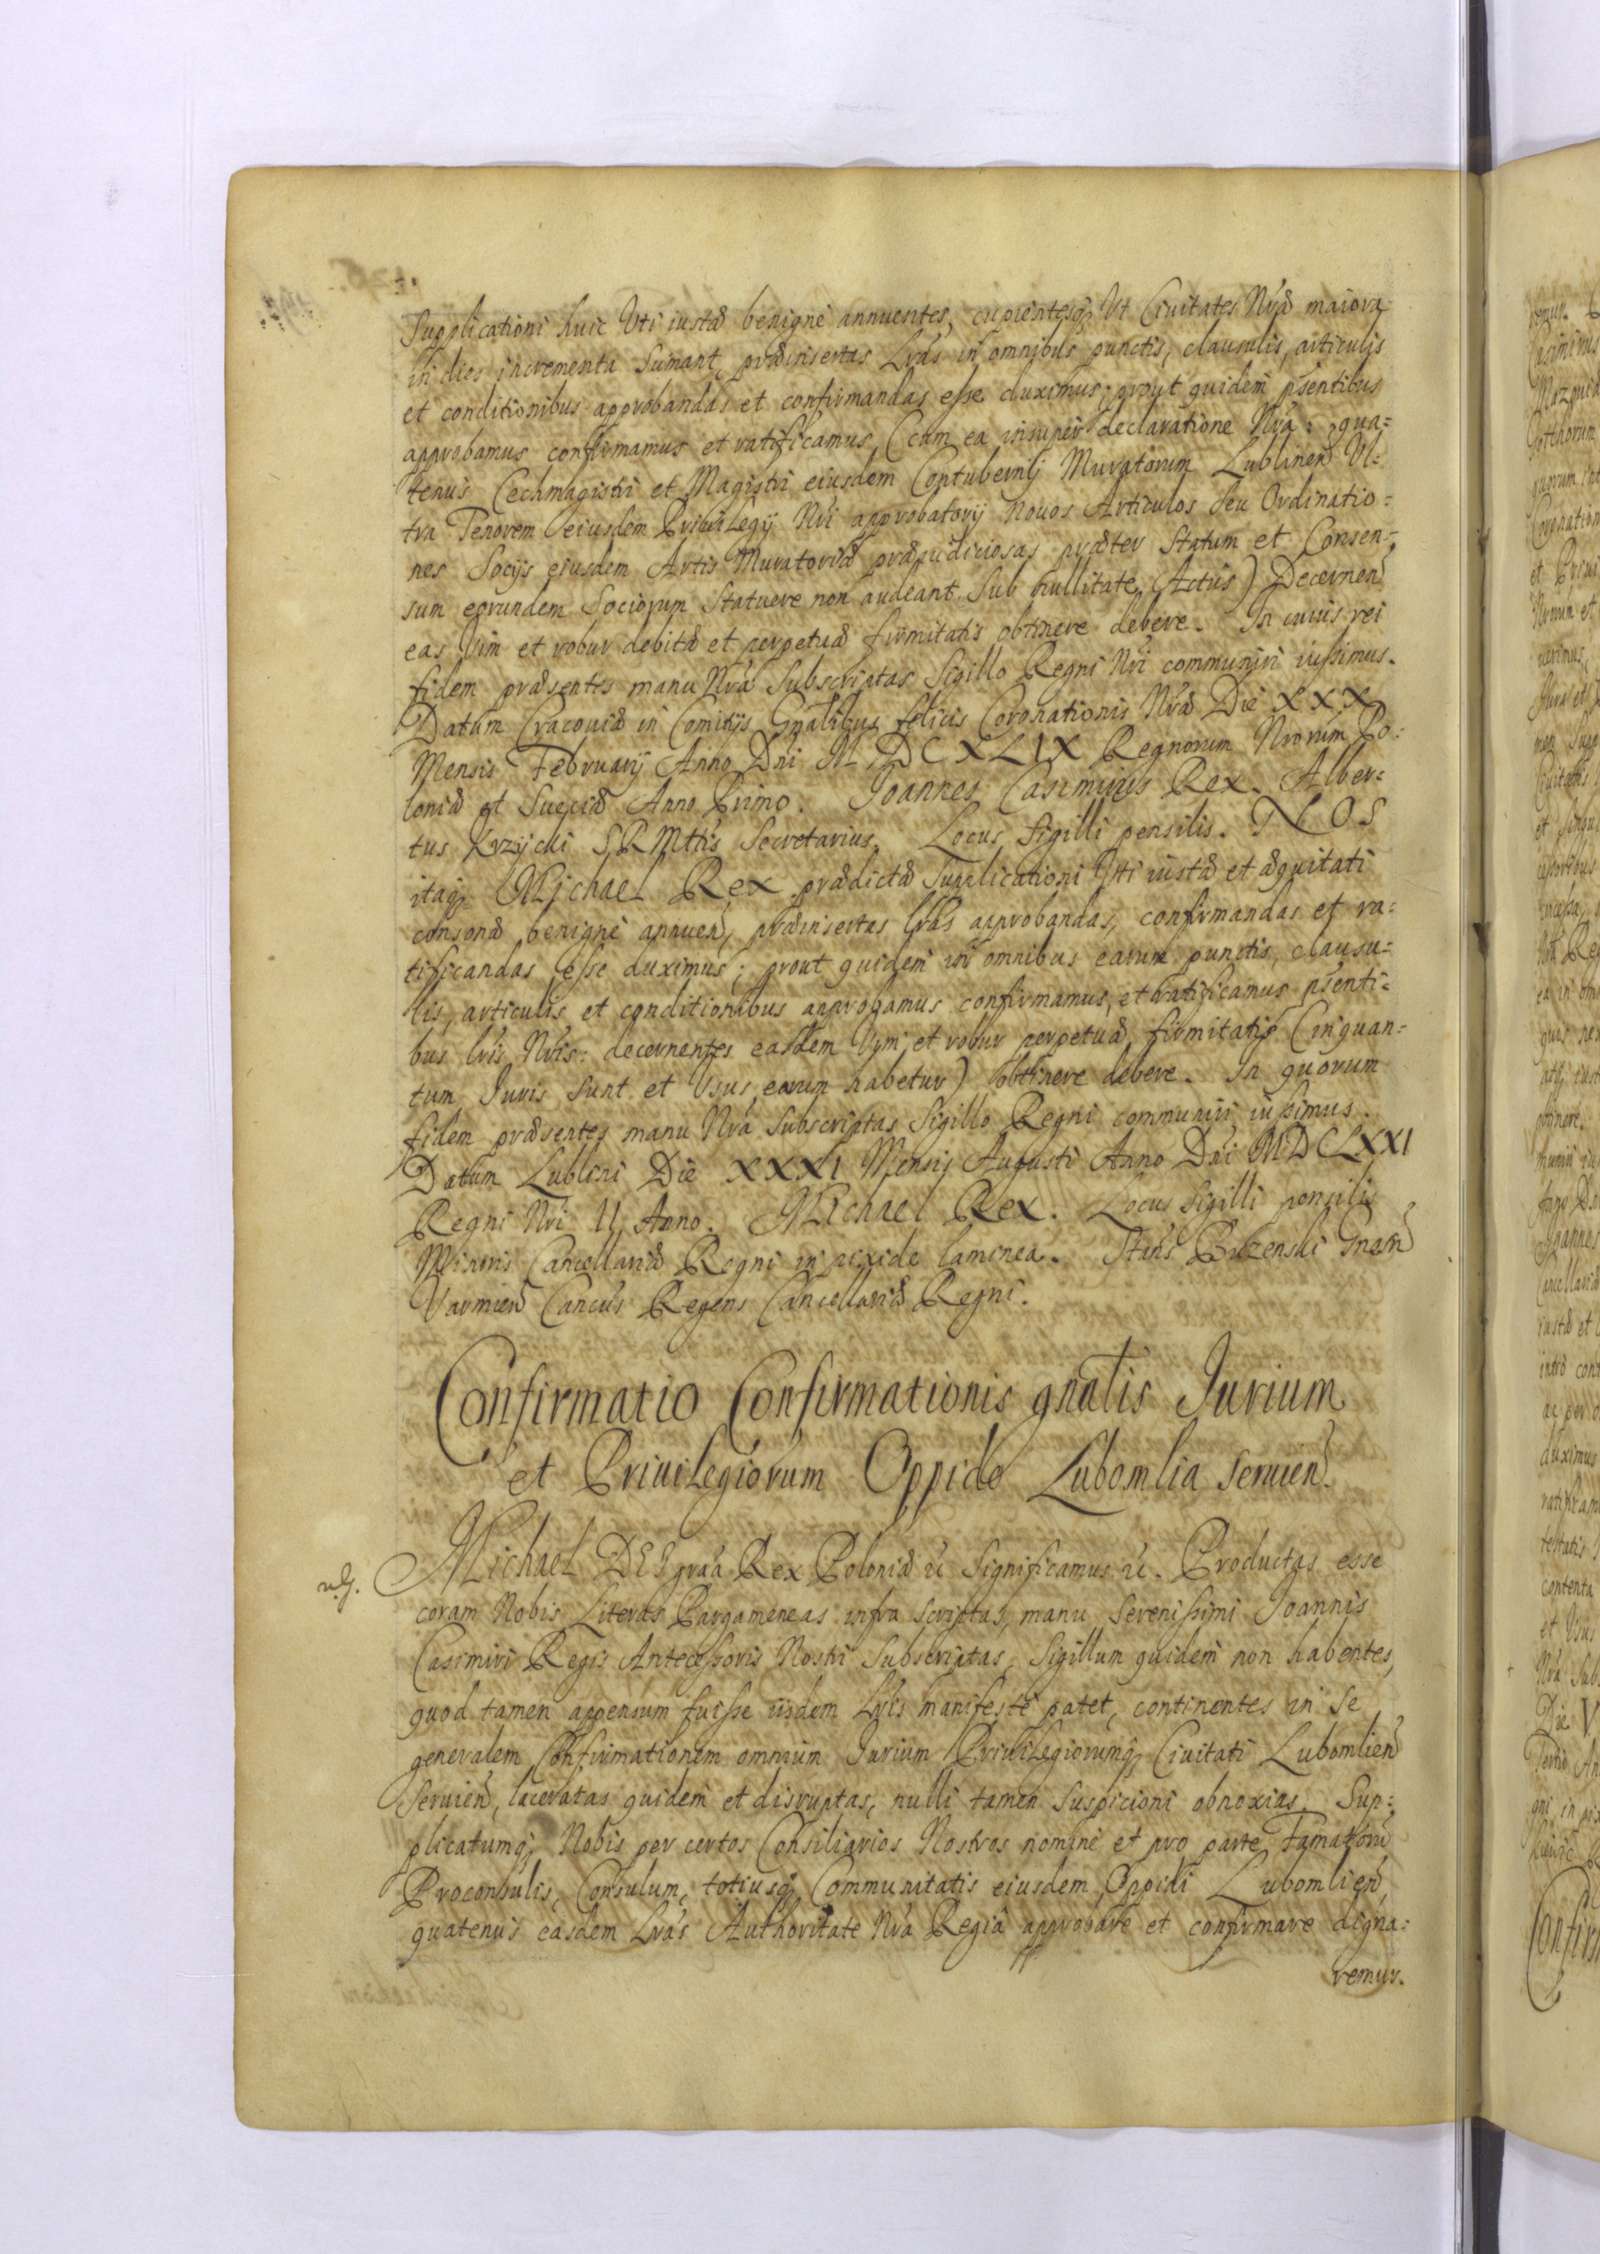 Supplicationi huic Uti iustæ benignè annuentes, cupientesq; Ut Ciuitates Nræ maiora
in dies incrementa Sumant, præinsertas Lras in omnibus punctis, clausulis, articulis
et conditionibus approbandas et confirmandas esse duximus; prout quidem pñsentibus
approbamus confirmamus et ratificamus (cum ea insuper declaratione Nra: qua=
tenus Cechmagistri et Magistri eiusdem Contubernij Muratorum Lublinen Ul=
tra Tenorem eiusdem Priuilegij Nri approbatorij Nouos Articulos Seu Ordinatio=
nes Socijs eiusdem Artis Muratoriæ præiudiciosas præter Statum et Consen=
sum eorundem Sociorum Statuere non audeant Sub nullitate Actûs) Decernen
eas Vim et robur debitæ et perpetuæ firmitatis obtinere debere. In cuius rei
fidem præsentes manu Nra Subscriptas Sigillo Regni Nri communiri iussimus.
Datum Cracouiæ in Comitijs Gnalibus felicis Coronationis Nræ Die XXX
Mensis Februarij Anno Dni MDCXLIX Regnorum Nrorum Po=
loniæ et Sueciæ Anno Primo. Joannes Casimirus Rex. Alber=
tus Krzycki SRMttis Secretarius. Locus Sigilli pensilis. NOS
itaq; Michael Rex prædictæ Supplicationi Uti iustæ et æquitati
consonæ benignè annuen, præinsertas lras approbandas, confirmandas et ra=
tificandas esse duximus; prout quidem in omnibus earum punctis, clausu=
lis, articulis et conditionibus approbamus confirmamus, et ratificamus pñsenti=
bus lris Nris: decernentes easdem Vim et robur perpetuæ firmitatis (inquan=
tum Iuris Sunt et Usus earum habetur) obtinere debere. In quorum
fidem præsentes manu Nra Subscriptas Sigillo Regni communiri iussimus.
Datum Lublini Die XXXI Mensis Augusti Anno Dni MDCLXXI
Regni Nri II Anno. Michael Rex. Locus Sigilli pensilis
Minoris Cancellariæ Regni in pixide laminea. Stans Buzenski Gnesn
Varmien Cancus Regens Cancellariæ Regni.
Confirmatio Confirmationis gnalis Jurium
et Priuilegiorum Oppido Lubomlia Seruien.
Michael DEI graa Rex Poloniæ &c Significamus &c. Productas esse
coram Nobis Literas Pargameneas infra Scriptas, manu Serenissimi Joannis
Casimiri Regis Antecessoris Nostri Subscriptas, Sigillum quidem non habentes,
quod tamen appensum fuisse iisdem Lris manifestè patet, continentes in Se
generalem Confirmationem omnium Jurium Priuilegiorumq; Ciuitati Lubomlien
Seruien, laceratas quidem et disruptas, nulli tamen Suspicioni obnoxias. Sup=
plicatumq; Nobis per certos Consiliarios Nostros nominè et pro parte Famatorum
Proconsulis, Consulum, totiusq; Communitatis eiusdem Oppidi Lubomlien,
quatenus easdem Lras Authoritate Nra Regiâ approbare et confirmare digna=
remur.